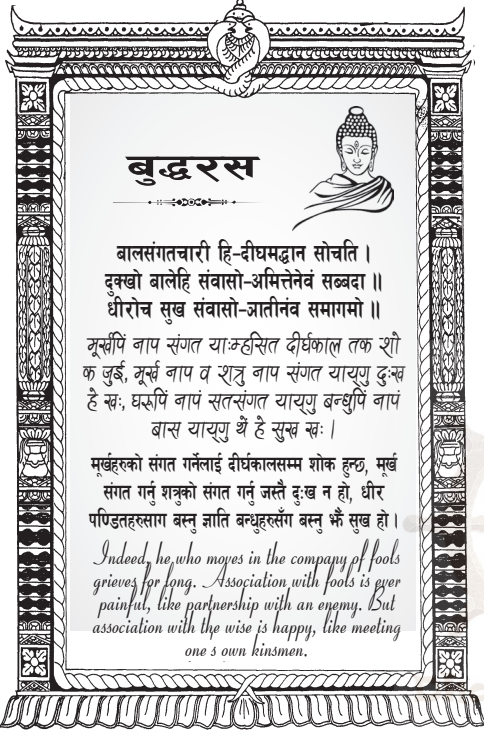 बुद्धरस
बालसंगतचारी हि-दीघमद्धान सोचति ।
दुक्खो बालेहि संवासो-अमित्तेनेवं सब्बदा ॥
धीरोच सुख संवासो-ञातीनंव समागमो ॥
मूर्खपिं नाप संगत याःम्हसित दीर्घकाल तक शो
क जुई, मूर्ख नाप व शत्रु नाप संगत यायगु दुःख
हे खः, घरूपिं नापं सतसंगत यायगु बन्धुपिं नापं
बास यायगु थें हे सुख खः ।
मूर्खहरुको संगत गर्नेलाई दीर्घकालसम्म शोक हुन्छ, मूर्ख
संगत गर्नु शत्रुको संगत गर्नु जस्तै दुःख न हो, धीर
पण्डितहरुसाग बस्नु ज्ञाति बन्धुहरुसँग बस्नु झैं सुख हो ।
Indeed, he who moves in the company pf fools
grieves for long. Association with fools is ever
painful, like partnership with an enemy. But
association with the wise is happy, like meeting
one s own kinsmen.